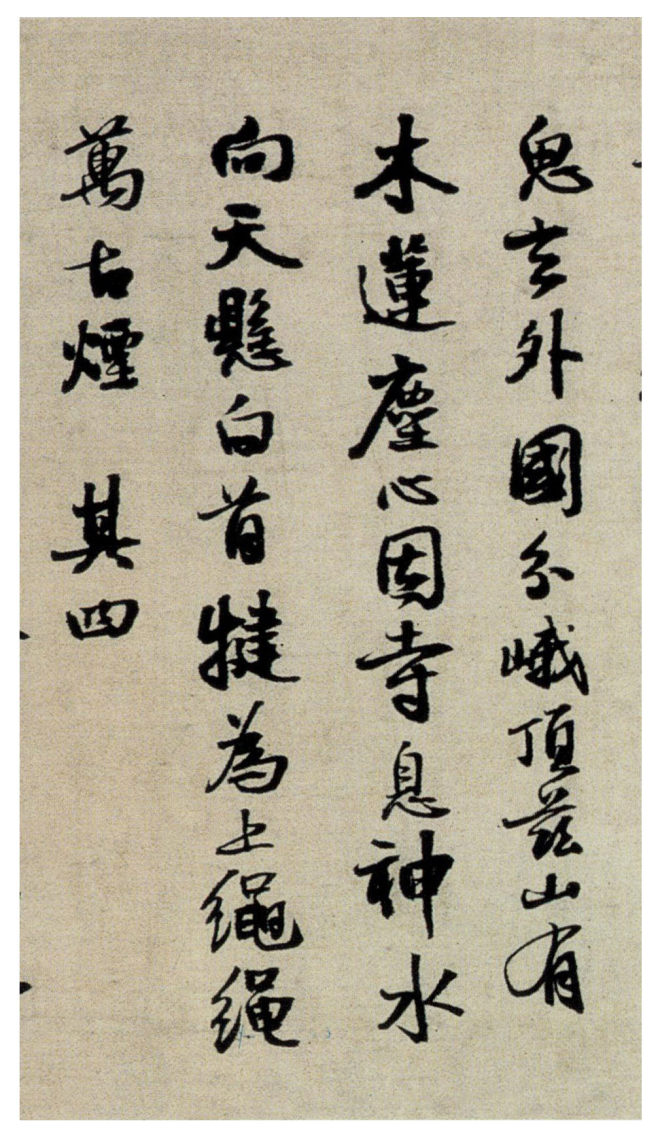 玄外國分峨頂茲山有
木蓮塵心因寺息神水
向天懸白首犍為上繩繩
萬古煙 其四